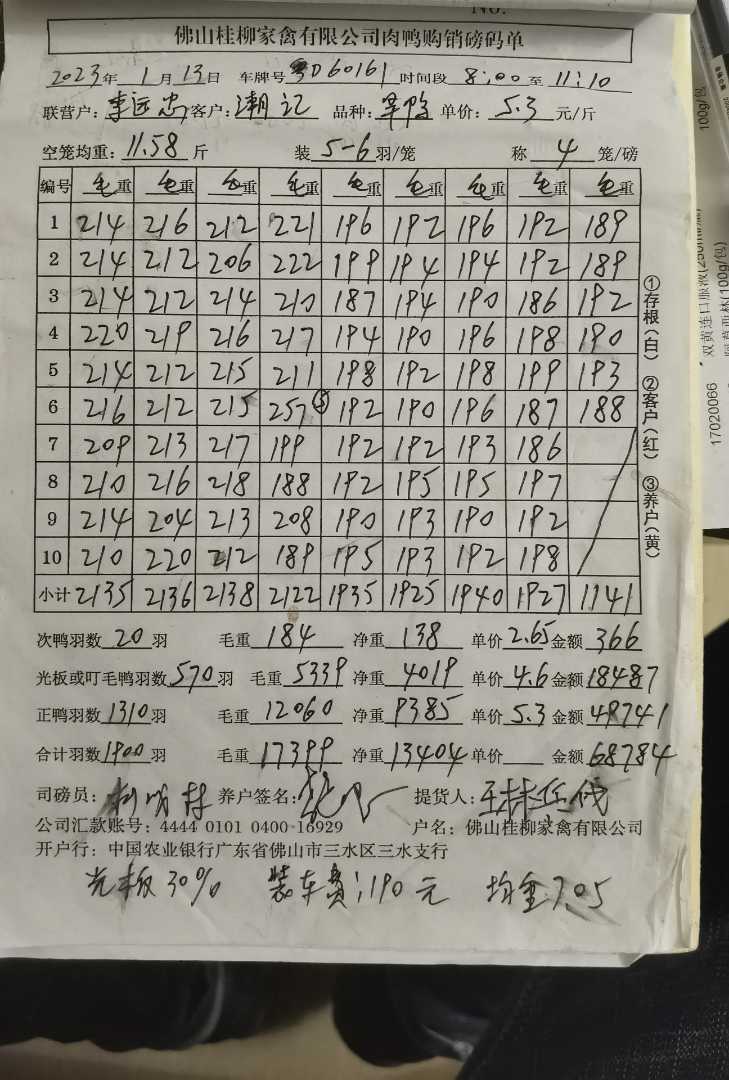 NO.
佛山桂柳家禽有限公司肉鸭购销磅码单
2023年 1月13日 车牌号 粤D60161 时间段 8:00 至 11:10
联营户: 李远忠 客户: 潮记 品种: 草鸭 单价: 5.3 元/斤
空笼均重: 11.58 斤 装 5-6 羽/笼 称 4 笼/磅
编号 毛重 毛重 毛重 毛重 毛重 毛重 毛重 毛重 毛重
1 214 216 212 221 196 192 196 192 189
2 214 212 206 222 199 194 194 192 189
3 214 212 214 210 187 194 190 186 192
4 220 219 216 217 194 190 196 198 190
5 214 212 215 211 198 192 198 199 193
6 216 212 215 257⑤ 192 190 196 187 188
7 209 213 217 199 192 192 193 186
8 210 216 218 188 192 195 195 197
9 214 204 213 208 190 193 190 192
10 210 220 212 189 195 193 192 198
小计 2135 2136 2138 2122 1935 1925 1940 1927 1141
次鸭羽数 20 羽 毛重 184 净重 138 单价 2.65 金额 366
光板或叮毛鸭羽数 570 羽 毛重 5339 净重 4019 单价 4.6 金额 18487
正鸭羽数 1310 羽 毛重 12060 净重 9385 单价 5.3 金额 49741
合计羽数 1900 羽 毛重 17399 净重 13404 单价 金额 68784
司磅员: 养户签名: 提货人:
公司汇款账号: 4444 0101 0400 16929 户名: 佛山桂柳家禽有限公司
开户行: 中国农业银行广东省佛山市三水区三水支行
光板 30% 装车费: 190 元 均重 7.05
①存根(白) ②客户(红) ③养户(黄)
100g/包
双黄连口服液(250ml/瓶)
(100g/包)
17020066